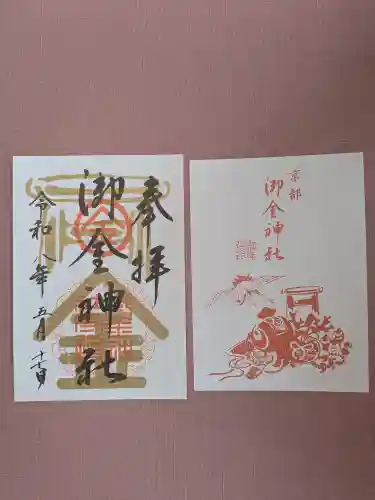 奉拝
御金神社
令和八年五月十七日
京都
御金神社